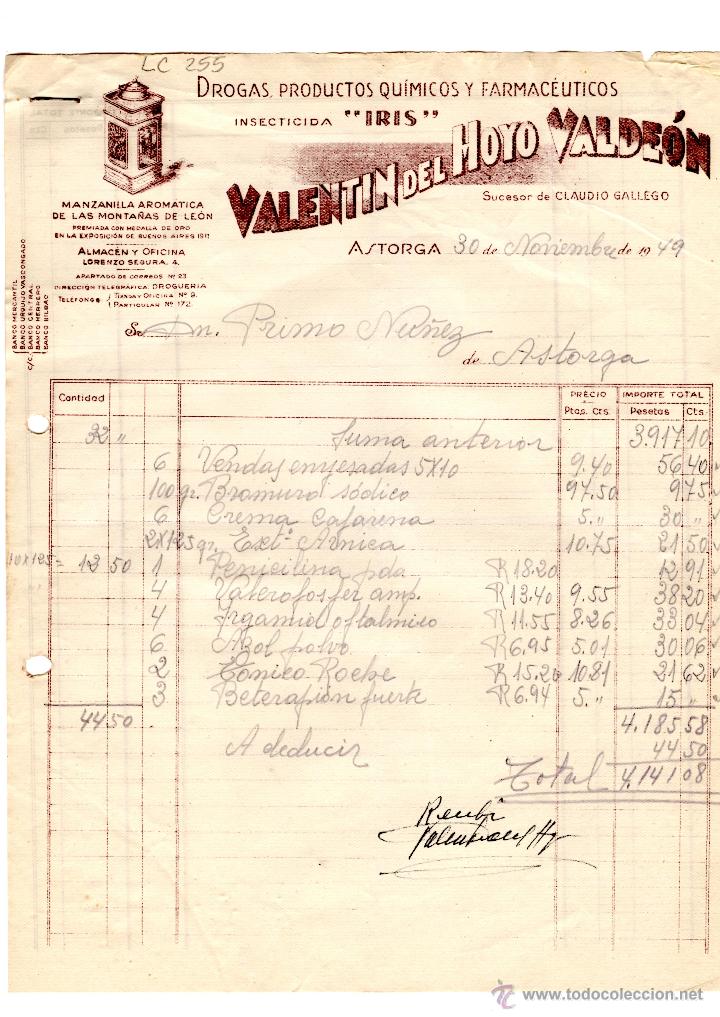 LC 255
DROGAS, PRODUCTOS QUÍMICOS Y FARMACÉUTICOS
INSECTICIDA "IRIS"
VALENTIN DEL HOYO VALDEÓN
Sucesor de CLAUDIO GALLEGO
MANZANILLA AROMÁTICA
DE LAS MONTAÑAS DE LEÓN
PREMIADA CON MEDALLA DE ORO
EN LA EXPOSICIÓN DE BUENOS AIRES 1911
ALMACÉN Y OFICINA
LORENZO SEGURA, 4.
APARTADO DE CORREOS Nº 23
DIRECCIÓN TELEGRÁFICA: DROGUERIA
TELÉFONOS { TIENDA Y OFICINA Nº 9.
PARTICULAR Nº 172.
C/C. BANCO MERCANTIL
BANCO URQUIJO VASCONGADO
BANCO CENTRAL
BANCO HERRERO
BANCO BILBAO
ASTORGA 30 de Noviembre de 1949
Sr. Dn. Primo Nuñez
de Astorga
Cantidad PRECIO IMPORTE TOTAL
Ptas. Cts. Pesetas Cts.
32 " Suma anterior 3.917 10
6 Vendas enyesadas 5x10 9.40 56 40
100 gr. Bromurol sódico 97.50 9 75
6 Crema Cafarena 5. " 30 "
2x125 gr. Extº Arnica 10.75 21 50
10x125= 12 50 1 Penicilina pda R 18.20 12 91
4 Valerofosfer amp. R 13.40 9.55 38 20
4 Irgamid oftalmico R 11.55 8.26 33 04
6 Azol polvo R 6.95 5.01 30 06
2 Tónico Roche R 15.20 10.81 21 62
3 fuerte R 6.94 5. " 15 "
44 50 4.185 58
A deducir 44 50
Total 4.141 08
Recibí
Valentin del Hoyo
© www.todocoleccion.net